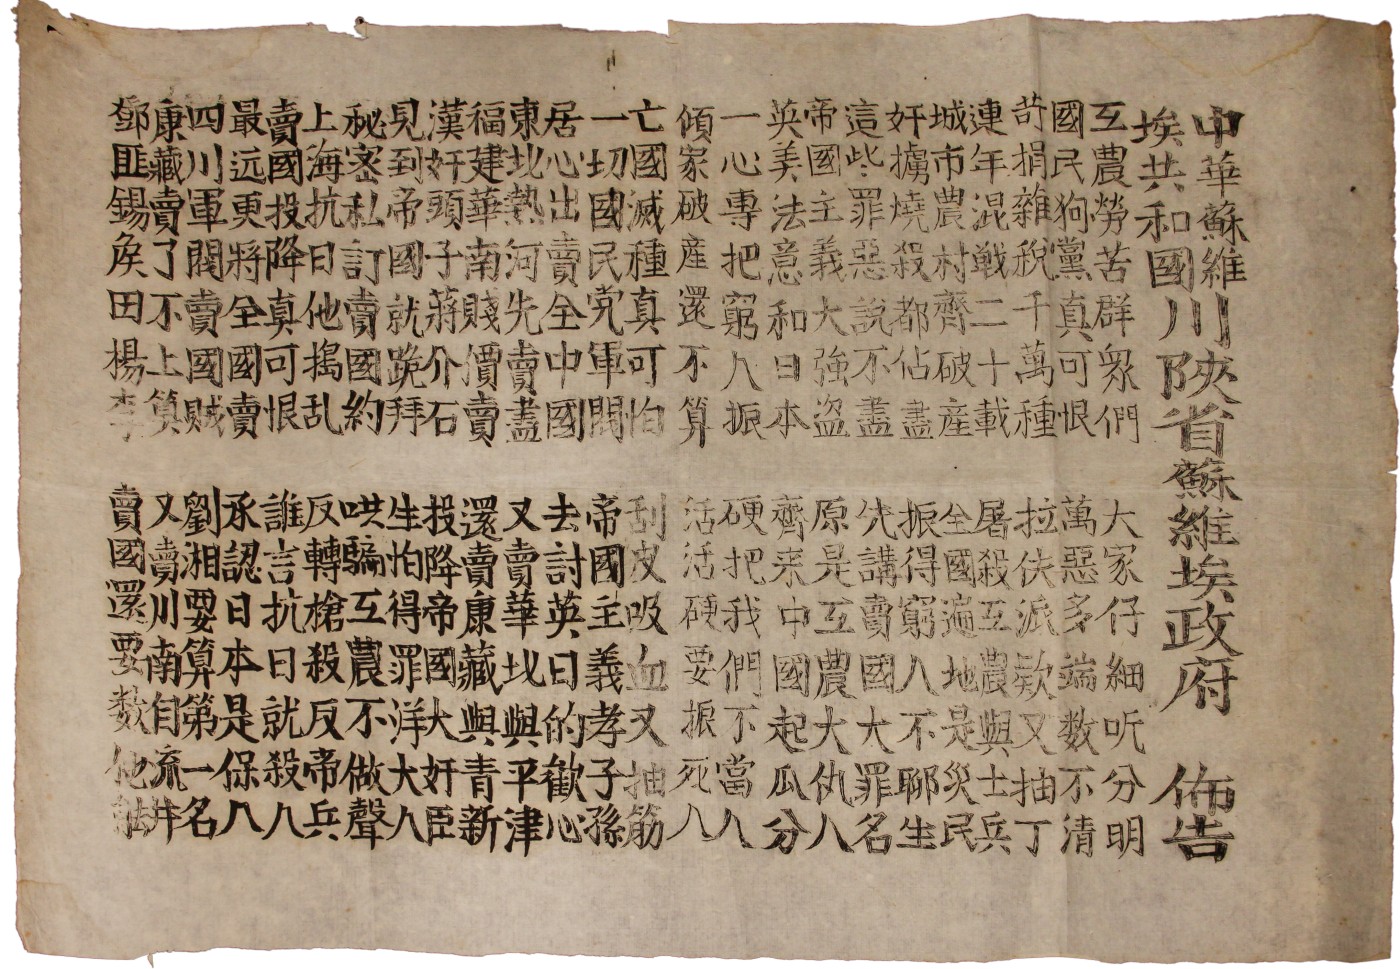 中華蘇維埃共和國川陝省蘇維埃政府 佈告
互農勞苦群眾們 大家仔細听分明
國民狗黨真可恨 萬惡多端数不清
苛捐雜稅千萬種 拉伕派欵又抽丁
連年混戰二十載 屠殺互農與士兵
城市農村齊破産 全國遍地是災民
奸擄燒殺都佔盡 振得窮人不聊生
這些罪惡說不盡 先講賣國大罪名
帝國主義大強盗 原是互農大仇人
英美法意和日本 齊来中國起瓜分
一心專把窮人振 硬把我們不當人
傾家破産還不算 活活硬要振死人
亡國滅種真可怕 刮皮吸血又抽筋
一切國民党軍閥 帝國主義孝子孫
居心出賣全中國 去討英日的歡心
東北熱河先賣盡 又賣華北與平津
福建華南賤價賣 還賣康藏與青新
漢奸頭子蔣介石 投降帝國大奸臣
見到帝國就跪拜 生怕得罪洋大人
秘密私訂賣國約 哄騙互農不做聲
上海抗日他搗乱 反轉槍殺反帝兵
賣國投降真可恨 誰言抗日就殺人
最远更將全國賣 承認日本是保人
四川軍閥賣國賊 劉相要算第一名
康藏賣了不上算 又賣川南自流井
鄧匪錫侯田楊李 賣國還要数他能